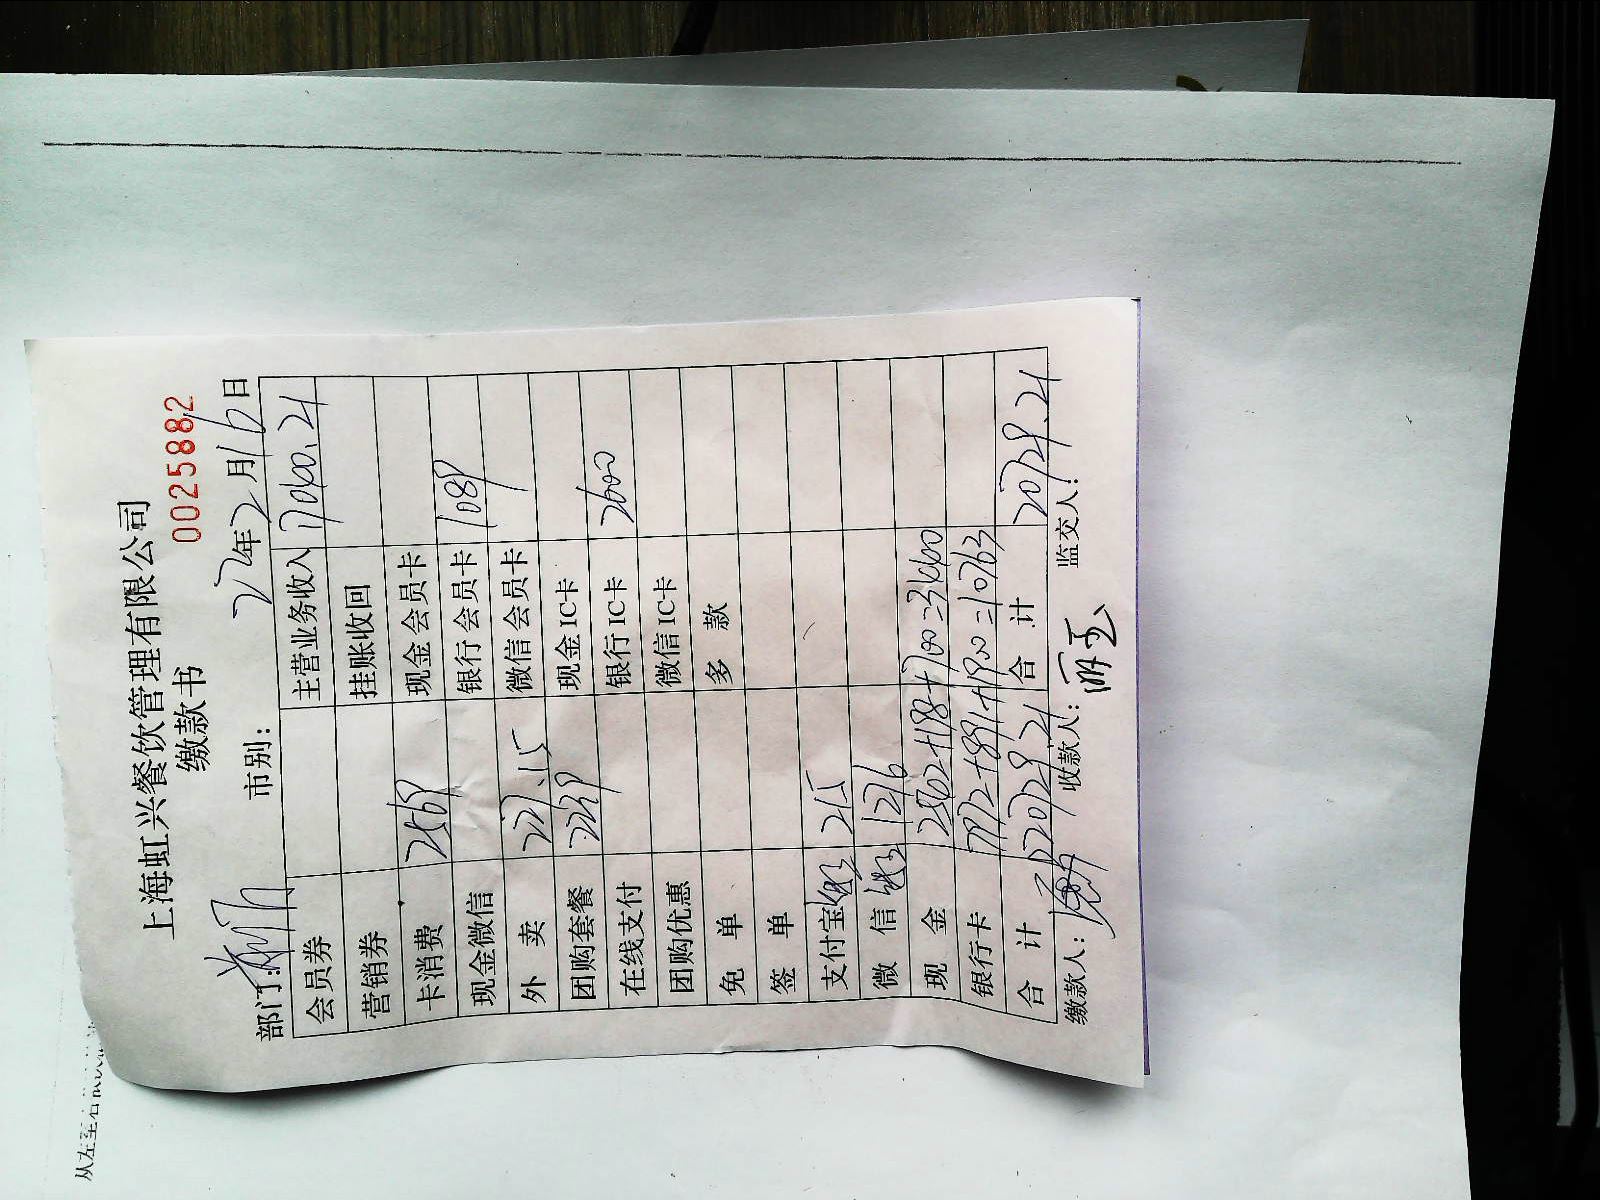 上海虹兴餐饮管理有限公司
缴款书 0025882
部门: 市别: 年2月16日
会员券 主营业务收入 17040.21
营销券 挂账收回
卡消费 2569 现金会员卡
现金微信 银行会员卡 1089
外 卖 微信会员卡
团购套餐 2239 现金IC卡
在线支付 银行IC卡 2600
团购优惠 微信IC卡
免 单 多 款
签 单
支付宝 215
微 信 1276
现 金 2542+198+700=3440
银行卡 7972+891+1900=10763
合 计 20729.21 合 计 20729.21
缴款人: 收款人: 监交人: